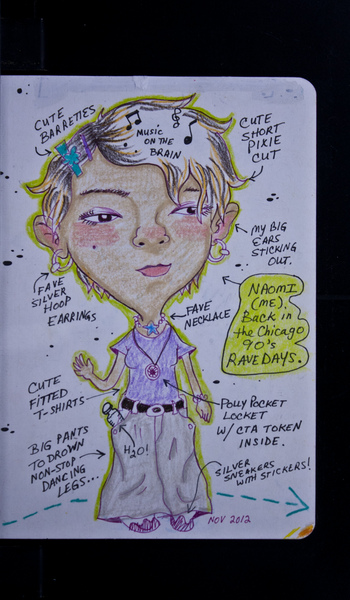 CUTE
BARRETTES
MUSIC
ON THE
BRAIN
CUTE
SHORT
PIXIE
CUT
MY BIG
EARS
STICKING
OUT.
FAVE
SILVER
HOOP
EARRINGS
FAVE
NECKLACE
NAOMI
(ME),
Back in
the Chicago
90's
RAVE DAYS.
CUTE
FITTED
T-SHIRTS
POLLY POCKET
LOCKET
W/ CTA TOKEN
INSIDE.
BIG PANTS
TO DROWN
NON-STOP
DANCING
LEGS...
H2O!
SILVER
SNEAKERS
WITH STICKERS!
NOV 2012